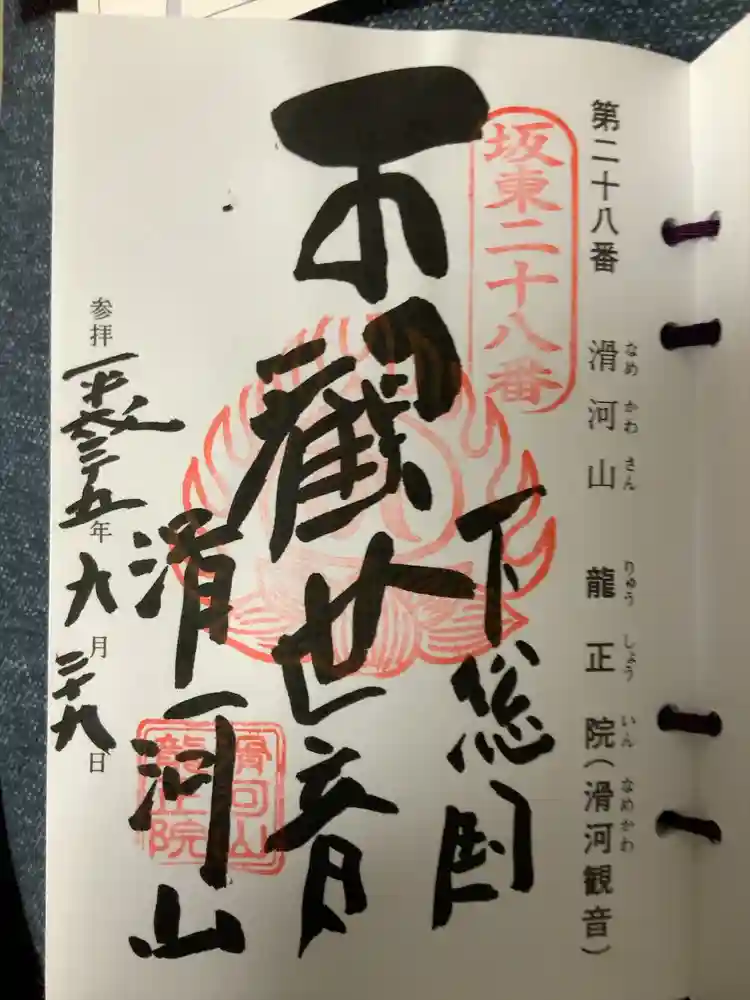 第二十八番 滑河山 龍正院(滑河観音)
なめ かわ さん りゅう しょう いん なめかわ
坂東二十八番
下総国
観世音
滑河山
滑河山
龍正院
参拝 平成二十五年九月二十九日